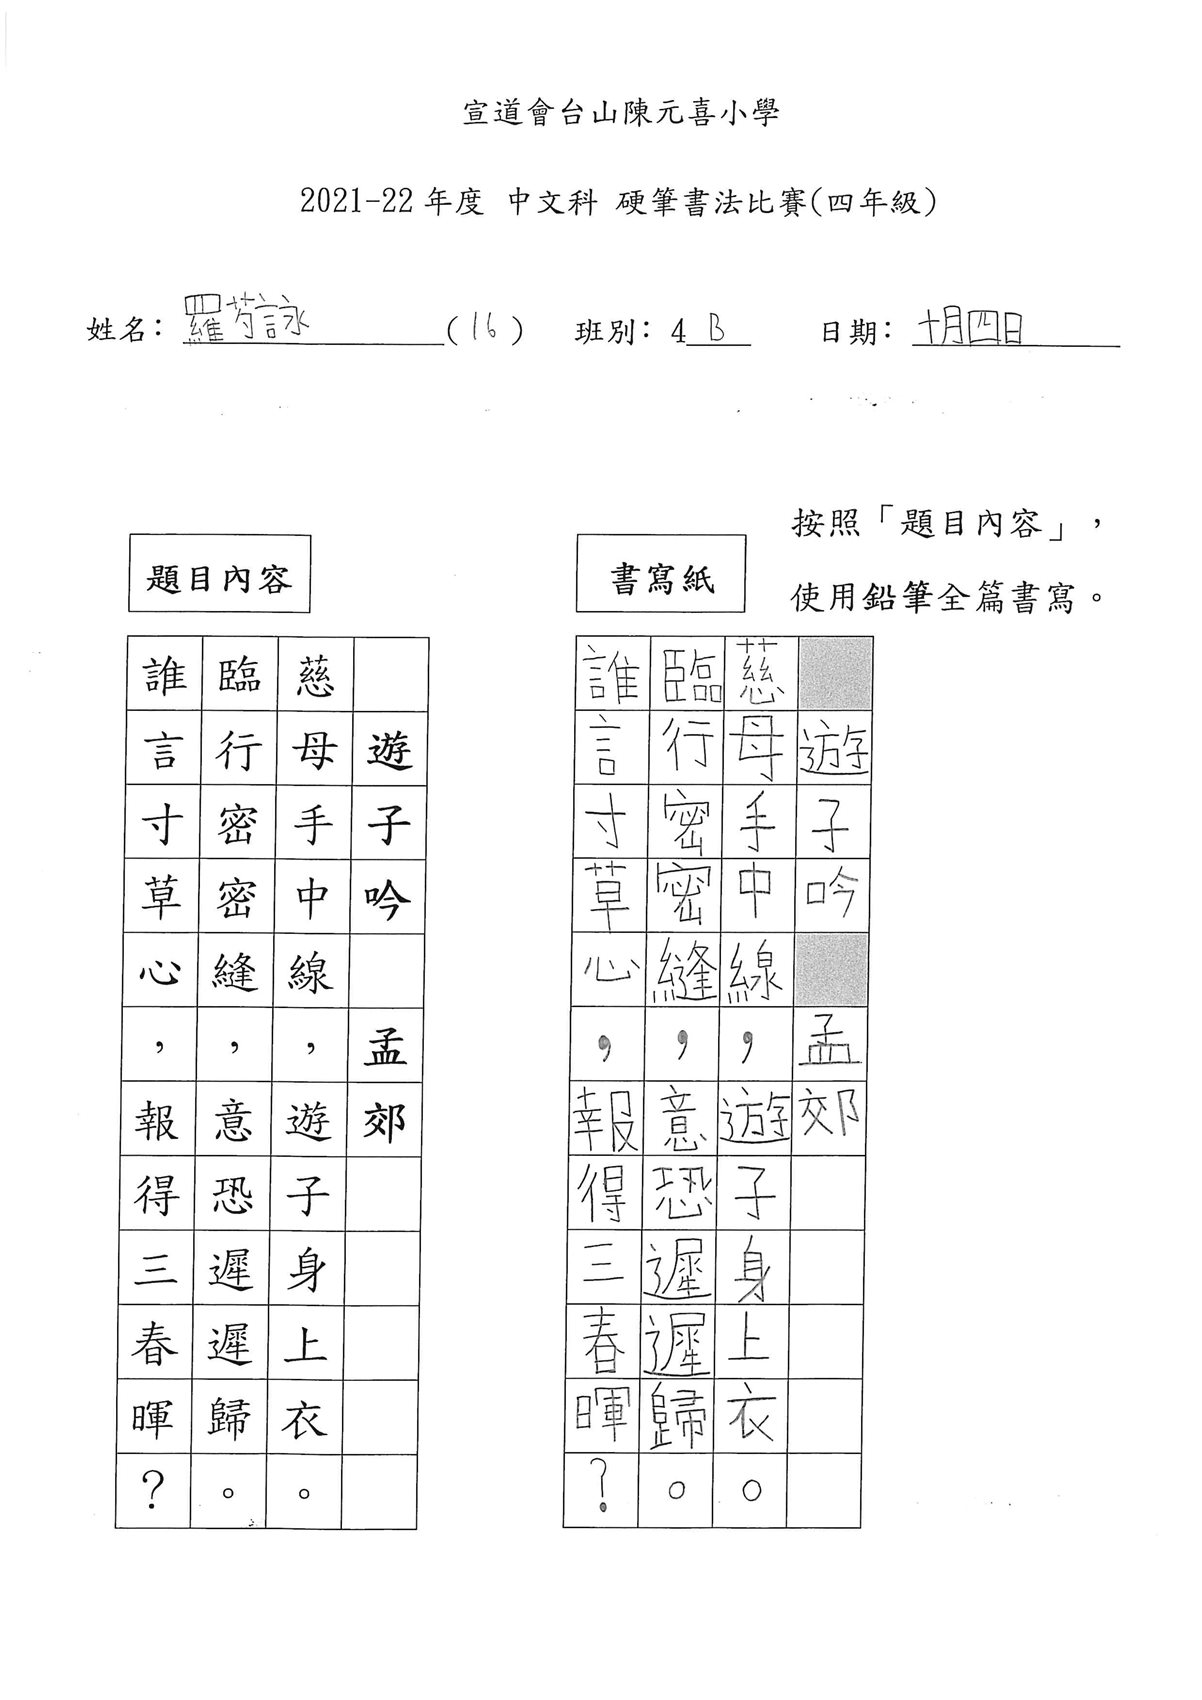 宣道會台山陳元喜小學
2021-22 年度 中文科 硬筆書法比賽(四年級)
姓名: 羅芍詠 (16) 班別: 4 B 日期: 十月四日
按照「題目內容」，
使用鉛筆全篇書寫。
題目內容
遊子吟 孟郊
慈母手中線，遊子身上衣。
臨行密密縫，意恐遲遲歸。
誰言寸草心，報得三春暉?
書寫紙
遊子吟 孟郊
慈母手中線，遊子身上衣。
臨行密密縫，意恐遲遲歸。
誰言寸草心，報得三春暉?